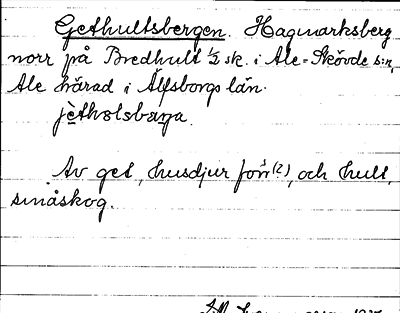 Gethultsbergen. Hagmarksberg
norr på Bredhult ½ sk. i Ale-Skövde s:n,
Ale härad i Älfsborgs län.
jèthəlsbæria.
Av get, husdjur, och hult,
småskog.